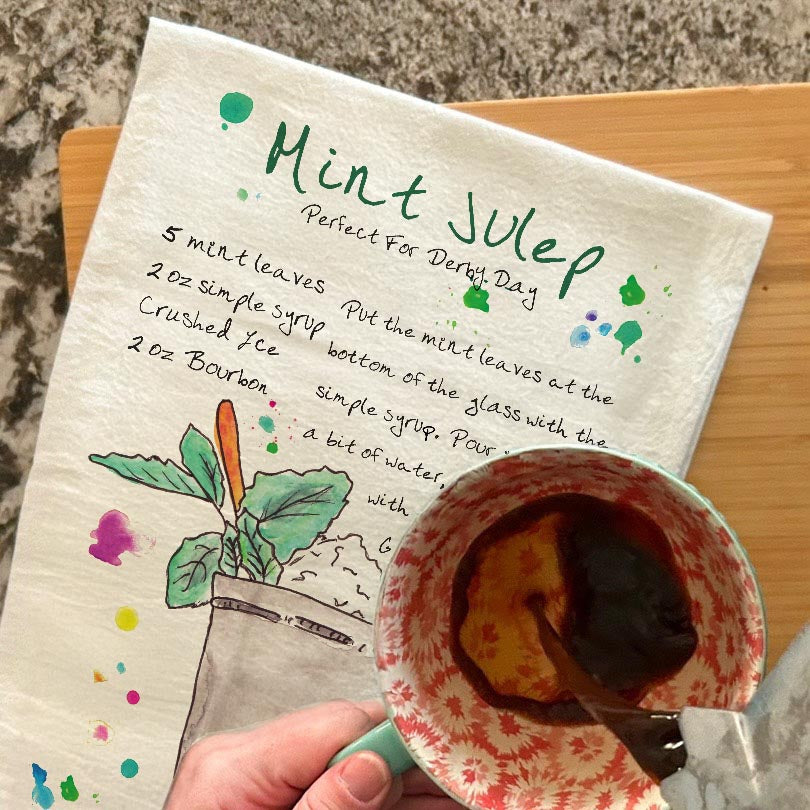 Mint Julep
Perfect For Derby Day
5 mint leaves
2 oz simple syrup
Crushed Ice
2 oz Bourbon
Put the mint leaves at the
bottom of the glass with the
simple syrup. Pour
a bit of water,
with